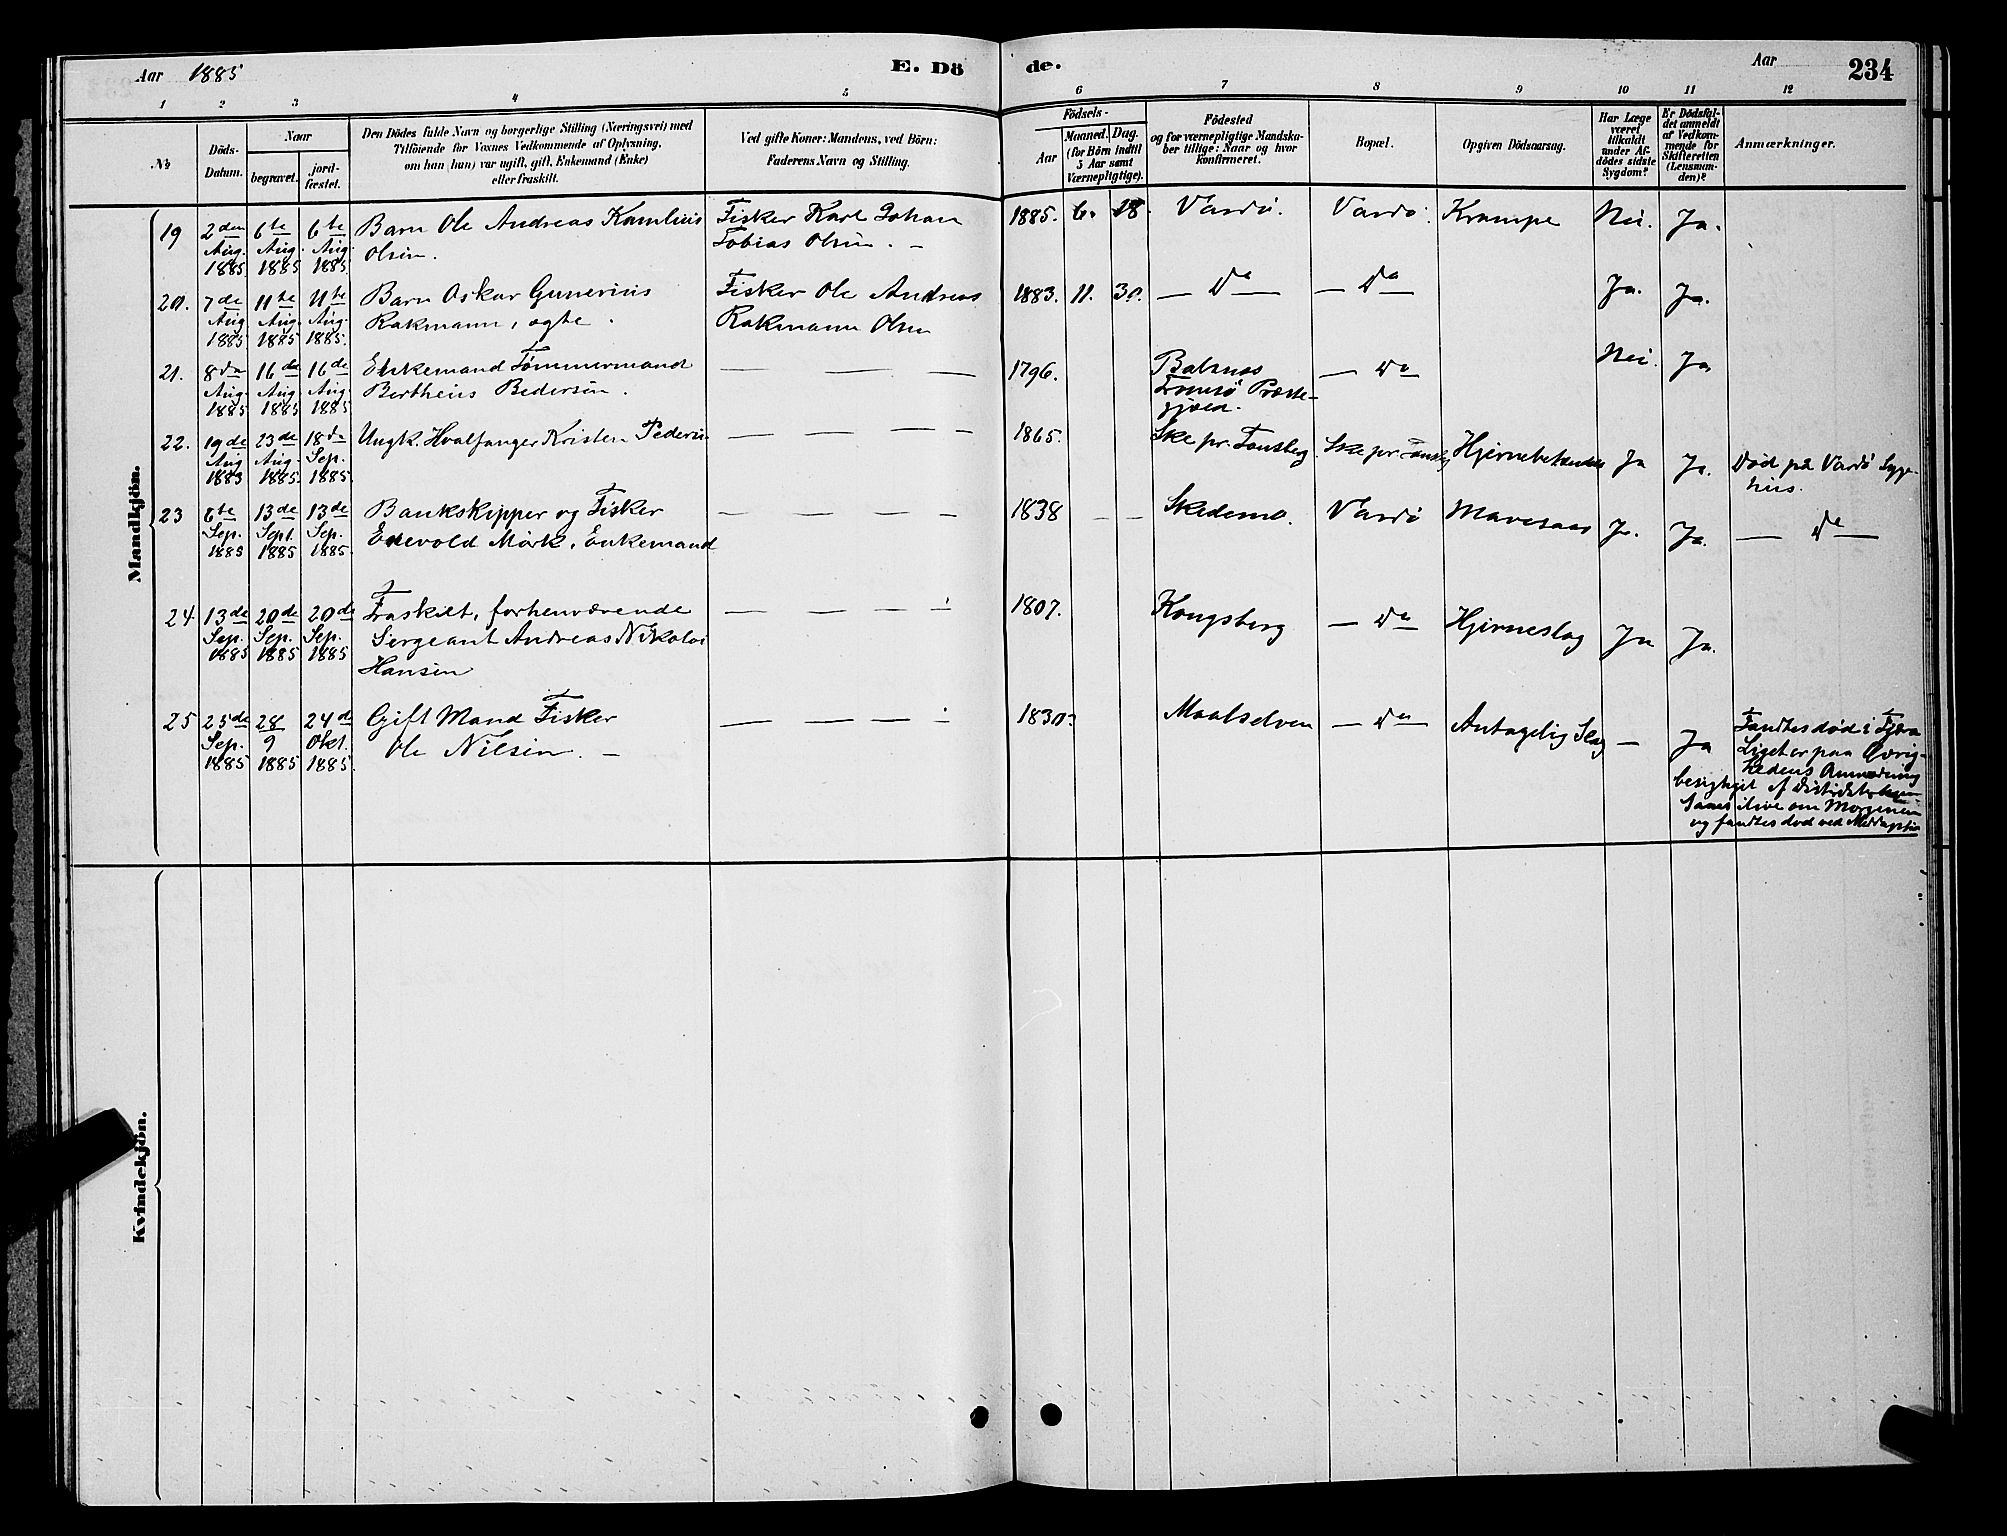 Aar 1885
E. Dö
de.
Aar
234
1 2 3 4 5 6 7 8 9 10 11 12
№
Döds-
Datum.
Naar
begravet.
jord-
fæstet.
Den Dödes fulde Navn og borgerlige Stilling (Næringsvei) med
Tilföiende for Voxnes Vedkommende af Oplysning,
om han (hun) var ugift, gift, Enkemand (Enke)
eller fraskilt.
Ved gifte Koner: Mandens, ved Börn:
Faderens Navn og Stilling.
Födsels-
Aar
Maaned. Dag.
(for Börn indtil
5 Aar samt
Værnepligtige).
Födested
og for værnepligtige Mandska-
ber tillige: Naar og hvor
konfirmeret.
Bopæl.
Opgiven Dödsaarsag.
Har Læge
været
tilkaldt
under Af-
dödes sidste
Sygdom?
Er Dödsfal-
det anmeldt
af Vedkom-
mende for
Skifteretten
(Lensman-
den)?
Anmærkninger.
Mandkjön.
19 2den Aug. 1885 6te Aug. 1885 6te Aug. 1885
Barn Ole Andreas Kornlius
Olsen.
Fisker Karl Johan
Tobias Olsen. –
1885. 6. 18. Vardö. Vardö. Krampe Nei. Ja.
20. 7de Aug 1885 11te Aug. 1885 11te Aug. 1885.
Barn Oskar Gunerius
Rakmann, ægte.
Fisker Ole Andreas
Rakmann Olsen
1883. 11. 30. — Do — — Do — Ja. Ja.
21. 8de Aug. 1885 16de Aug 1885 16de Aug 1885
Enkemand Tømmermand
Bertheus Pedersen.
— — —
1796. Balsnes
Tromsö Præste-
gjæld.
— Do — Nei. Ja
22. 19de Aug 1885 23de Aug. 1885. 18de Sep. 1885.
Ungk. Hvalfanger Kristen Pedersen
— — — —
1865. Ske pr. Tønsberg Ske pr. Tønsbg Hjernebetændelse Ja Ja. Död på Vardö Syge-
hus.
23 6te Sep. 1885 13de Sept. 1885 13de Sep. 1885.
Bankskipper og Fisker
Edevold Mörk, Enkemand
— — — —
1838 — — Skedsmo. Vardö Mavesaar Ja. Ja. — Do —
24 13de Sep. 1885 20de Sep. 1885 20de Sep. 1885
Fraskilt, forhenværende
Sergeant Andreas Nikolai
Hansen
— — — —
1807. Kongsberg — Do — Hjerneslag Ja Ja.
25 25de Sep. 1885 28/9 1885 24de Okt. 1885.
Gift Mand Fisker
Ole Nilsen. –
— — — —
1830? Maalselven — Do — Antagelig Slag — Ja
Fandtes död i Fjæra
Liget er paa Øvrig-
hedens Anmodning
besigtiget af Distriktslægen
Saaes ilive om Morgenen
og fandtes död ved Middagstid
Kvindekjön.